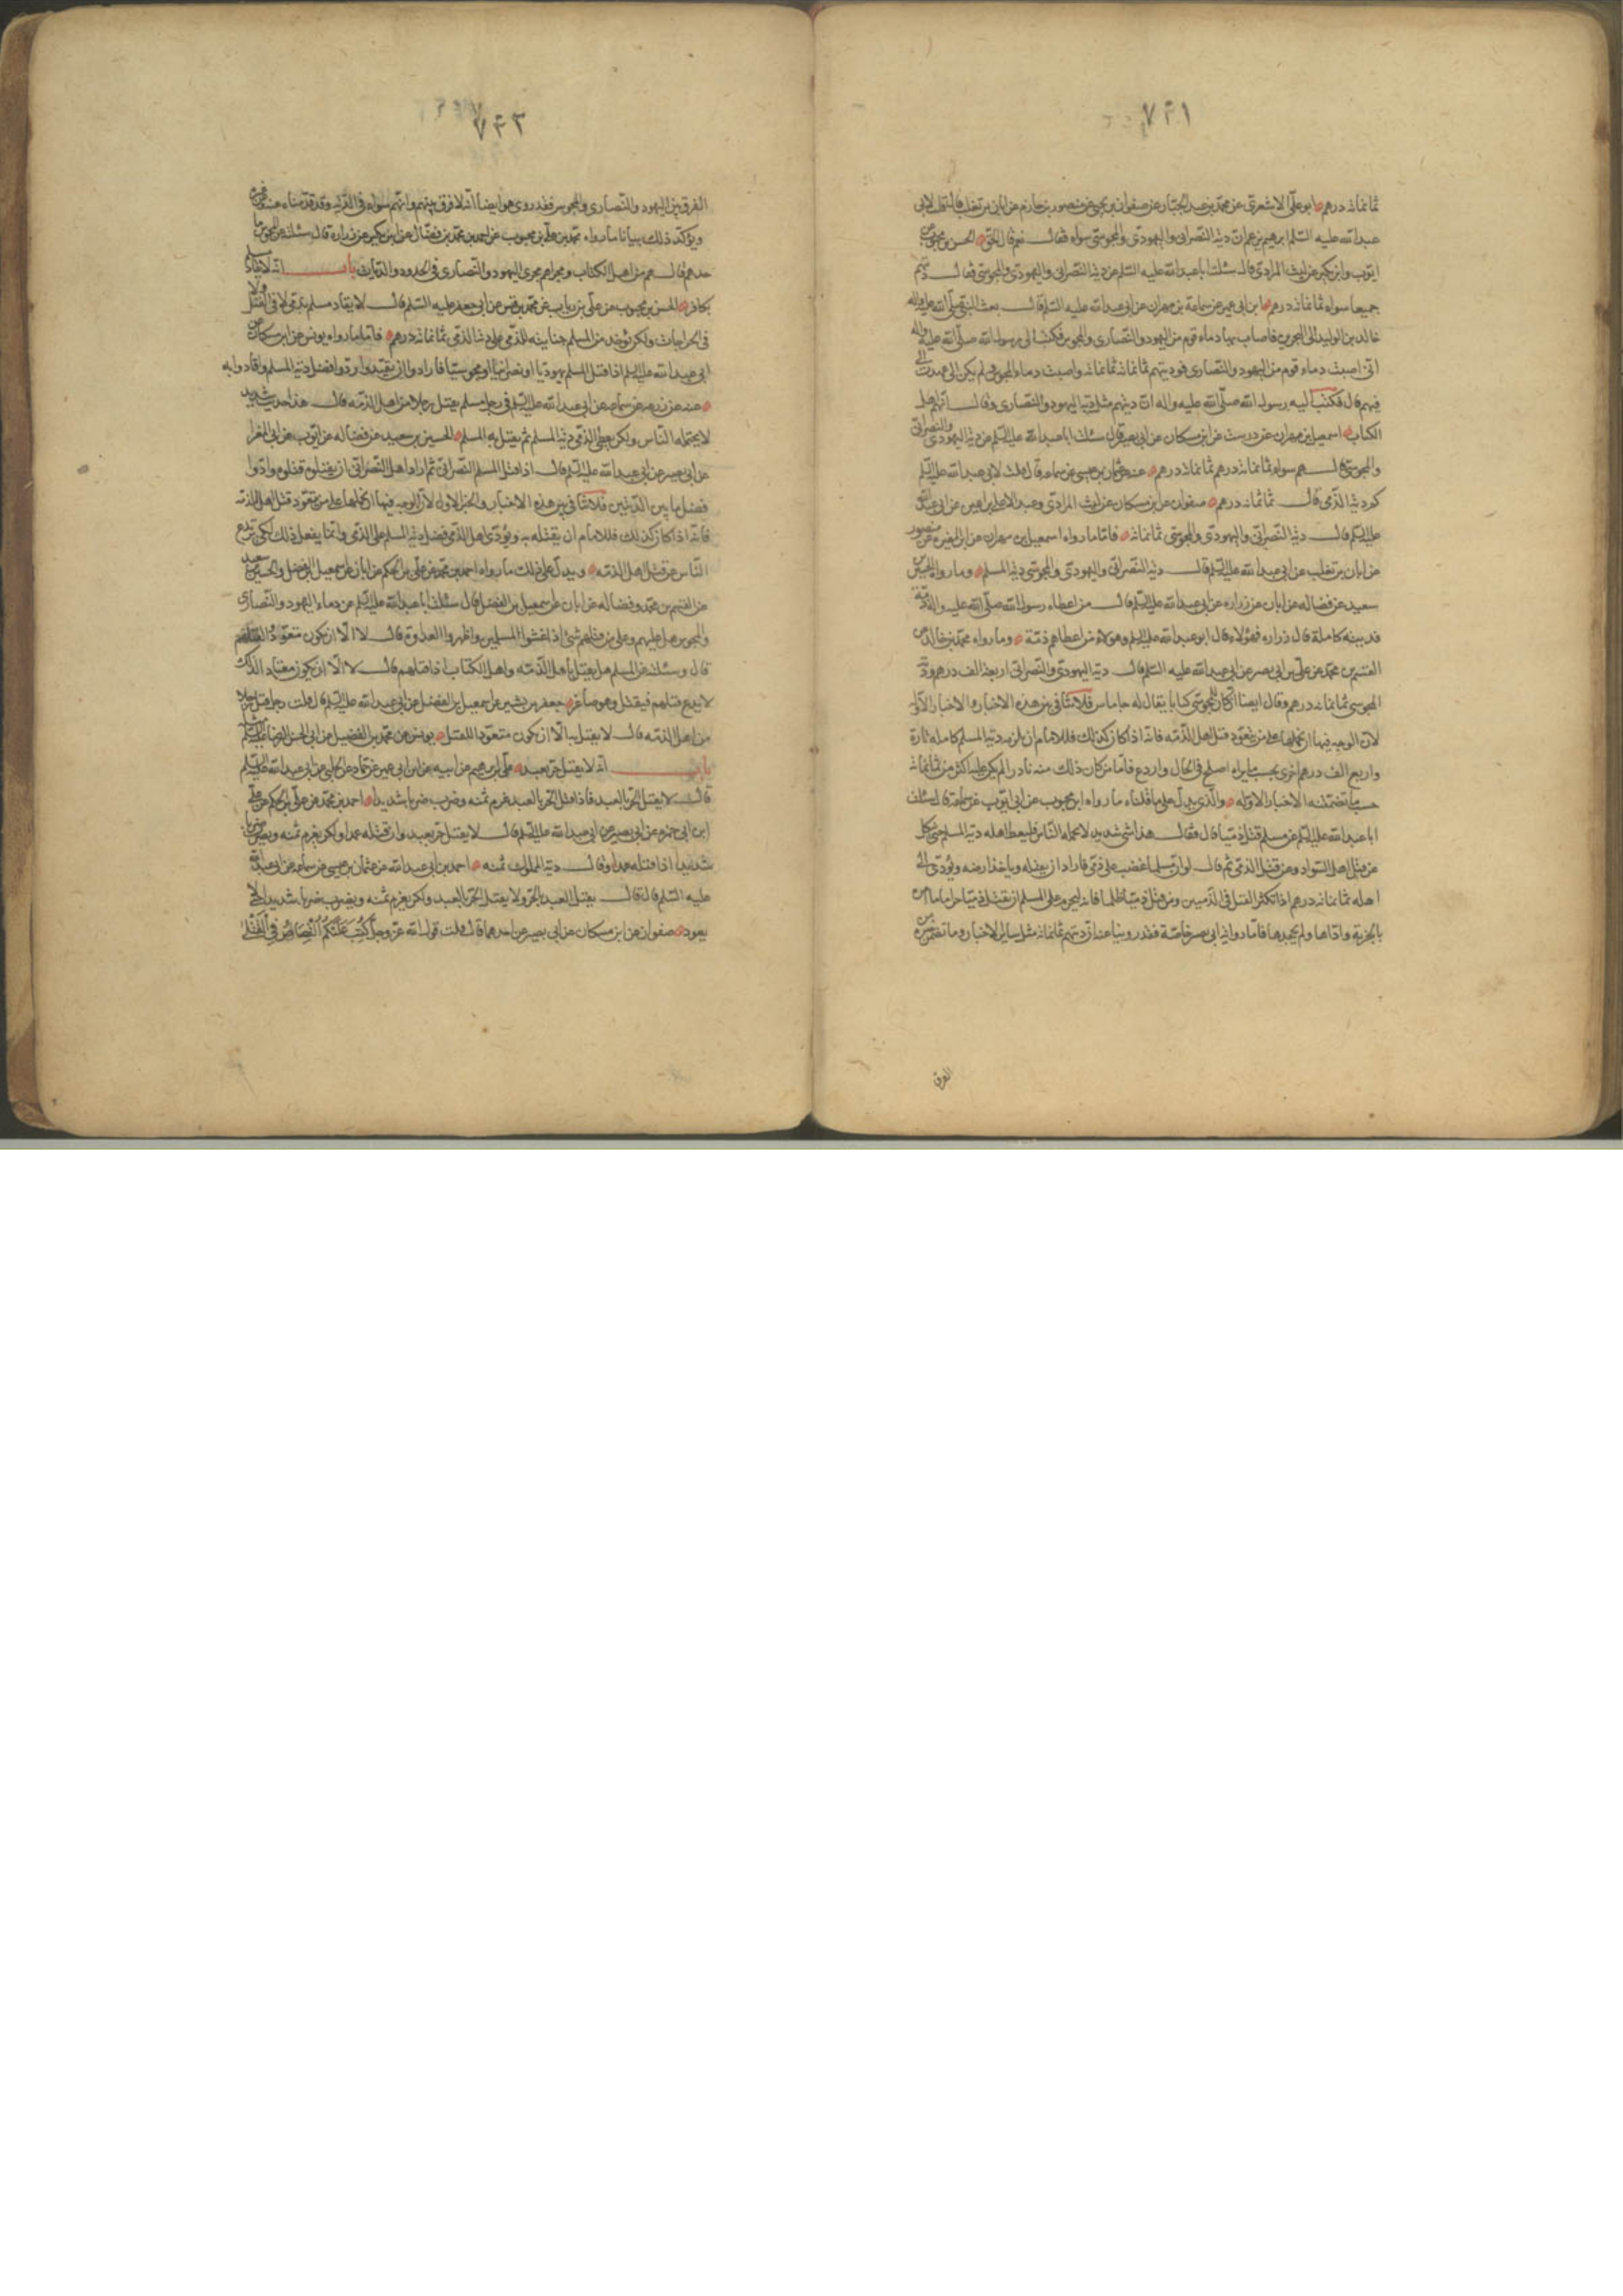 ٧٤١
ثمانمائة درهم ابو علي الاشعري عن محمد بن عبد الجبار عن صفوان بن يحيى عن منصور بن حازم عن ابان بن تغلب قال قلت لابي
عبد الله عليه السلم ابرهيم يزعم ان دية النصراني واليهودي والمجوسي سواء فقال نعم قال الحق الحسن بن محبوب عن
ايوب وابن بكير عن ليث المرادي قال سئلت ابا عبد الله عليه السلم عن دية النصراني واليهودي والمجوسي فقال ديتهم
جميعا سواء ثمانمائة درهم ابن ابي عمير عن سماعة بن مهران عن ابي عبد الله عليه السلم قال بعث النبي صلى الله عليه واله
خالد بن الوليد الى البحرين فاصاب بها دماء قوم من اليهود والنصارى والمجوس فكتب الى رسول الله صلى الله عليه واله
اني اصبت دماء قوم من اليهود والنصارى فوديتهم ثمانمائة ثمانمائة واصبت دماء المجوس ولم يكن الى عهدت الي
فيهم قال فكتب اليه رسول الله صلى الله عليه واله ان ديتهم مثل دية اليهود والنصارى وقال انهم اهل
الكتاب اسمعيل بن مهران عن درست عن ابن مسكان عن ابي بصير قال سئلت ابا عبد الله عليه السلم عن دية اليهودي والنصراني
والمجوسي قال هم سواء ثمانمائة درهم ثمانمائة درهم عنه عن عثمان بن عيسى عن سماعة قال قلت لابي عبد الله عليه السلم
كم دية الذمي قال ثمانمائة درهم صفوان عن ابن مسكان عن ليث المرادي وعبد الاعلى بن اعين عن ابي عبد الله
عليه السلم قال دية النصراني واليهودي والمجوسي ثمانمائة فاما ما رواه اسمعيل بن مهران عن ابن المغيرة عن منصور
عن ابان بن تغلب عن ابي عبد الله عليه السلم قال دية النصراني واليهودي والمجوسي دية المسلم وما رواه الحسين بن
سعيد عن فضالة عن ابان عن زرارة عن ابي عبد الله عليه السلم قال من اعطاه رسول الله صلى الله عليه واله ذمة
فديته كاملة قال زرارة فهؤلاء قال ابو عبد الله عليه السلم وهؤلاء من اعطاهم ذمة وما رواه محمد بن خالد عن
القسم بن محمد عن علي بن ابي بصير عن ابي عبد الله عليه السلم قال دية اليهودي والنصراني اربعة الف درهم ودية
المجوسي ثمانمائة درهم وقال ايضا ان كان للمجوسي كتابا يقال له جاماس فلا تنافي بين هذه الاخبار والاخبار الاولة
لان الوجه فيها ان نحملها على من يتعود قتل اهل الذمة فانه اذا كان كذلك فللامام ان يلزمه دية المسلم كاملة تارة
واربع الف درهم اخرى بحسب ما يراه اصلح في الحال واردع فاما من كان ذلك منه نادرا لم يكن عليه اكثر من ثمانمائة
حسب ما تضمنته الاخبار الاولة والذي يدل على ما قلناه ما رواه ابن محبوب عن ابي ايوب عن سماعة قال سئلت
ابا عبد الله عليه السلم عن مسلم قتل ذميا قال فقال هذا شئ شديد لا يحتمله الناس فليعط اهله دية المسلم حتى ينكل
عن قتل اهل السواد وعن قتل الذمي ثم قال لو ان مسلما غضب على ذمي فاراد ان يقتله وياخذ ارضه ويؤدي الى
اهله ثمانمائة درهم اذا تكثر القتل في الذميين ومن قتل ذميا ظلما فانه ليحرم على المسلم ان يقتل ذميا حراما ما امن
بالجزية واداها ولم يجحدها فاما رواية ابي بصير خاصة فقد روينا عنه ان ديتهم ثمانمائة مثل سائر الاخبار وما تضمن من
الفرق
٧٤٢
الفرق بين اليهود والنصارى والمجوس فقد روى هو ايضا انه لا فرق بينهم وانهم سواء في الدية وقد قدمناه عنه وعن غيره
ويؤكد ذلك بيانا ما رواه محمد بن علي بن محبوب عن احمد بن محمد بن فضال عن ابن بكير عن زرارة قال سئلته عن المجوس ما
حدهم قال هم من اهل الكتاب ومجراهم مجرى اليهود والنصارى في الحدود والديات باب انه لا يقاد مسلم
بكافر الحسن بن محبوب عن علي بن رياب عن محمد بن قيس عن ابي جعفر عليه السلم قال لا يقاد مسلم بذمي لا في القتل ولا
في الجراحات ولكن يؤخذ من المسلم جنايته للذمي على دية الذمي ثمانمائة درهم فاما ما رواه يونس عن ابن مسكان عن
ابي عبد الله عليه السلم اذا قتل المسلم يهوديا او نصرانيا او مجوسيا فارادوا ان يقيدوا ردوا فضل دية المسلم واقادوا به
عنه عن زرعة عن سماعة عن ابي عبد الله عليه السلم في رجل مسلم يقتل رجلا من اهل الذمة قال هذا حديث شديد
لا يحتمله الناس ولكن يعطي الذمي دية المسلم ثم يقتل به المسلم الحسين بن سعيد عن فضالة عن ايوب عن ابي المغرا
عن ابي بصير عن ابي عبد الله عليه السلم قال اذا قتل المسلم النصراني ثم اراد اهل النصراني ان يقتلوه قتلوه وادوا
فضل ما بين الديتين فلا تنافي بين هذه الاخبار والخبر الاول لان الوجه فيها ان نحملها على من يتعود قتل اهل الذمة
فانه اذا كان كذلك فللامام ان يقتله به ويؤدي اهل الذمي فضل دية المسلم على الذمي وانما يفعل ذلك لكي يرتدع
الناس عن قتل اهل الذمة ويدل على ذلك ما رواه احمد بن محمد عن علي بن الحكم عن ابان عن اسمعيل بن الفضل والحسين بن سعيد
عن القسم بن محمد وفضالة عن ابان عن اسمعيل بن الفضل قال سئلت ابا عبد الله عليه السلم عن دماء اليهود والنصارى
والمجوس هل عليهم وعلى من قتلهم شئ اذا غشوا المسلمين واظهروا العداوة قال لا الا ان يكون متعودا لقتلهم
قال وسئلته عن المسلم هل يقتل باهل الذمة واهل الكتاب اذا قتلهم قال لا الا ان يكون معتادا لذلك
لا يدع قتلهم فيقتل وهو صاغر جعفر بن بشير عن اسمعيل بن الفضل عن ابي عبد الله عليه السلم قال قلت رجل قتل رجلا
من اهل الذمة قال لا يقتل به الا ان يكون متعودا للقتل يونس عن محمد بن الفضيل عن ابي الحسن الرضا عليه السلم مثله
باب انه لا يقتل حر بعبد علي بن ابرهيم عن ابيه عن ابن ابي عمير عن حماد عن الحلبي عن ابي عبد الله عليه السلم
قال لا يقتل الحر بالعبد فاذا قتل الحر بالعبد غرم ثمنه وضرب ضربا شديدا احمد بن محمد عن علي بن الحكم عن علي
ابن ابي حمزة عن ابي بصير عن ابي عبد الله عليه السلم قال لا يقتل حر بعبد وان قتله عمدا ولكن يغرم ثمنه ويضرب ضربا
شديدا اذا قتله عمدا وقال دية المملوك ثمنه احمد بن ابي عبد الله عن عثمان بن عيسى عن سماعة عن ابي عبد الله
عليه السلم قال قال يقتل العبد بالحر ولا يقتل الحر بالعبد ولكن يغرم ثمنه ويضرب ضربا شديدا حتى لا
يعود صفوان عن ابن مسكان عن ابي بصير عن احدهما قال قلت قول الله عز وجل كتب عليكم القصاص في القتلى